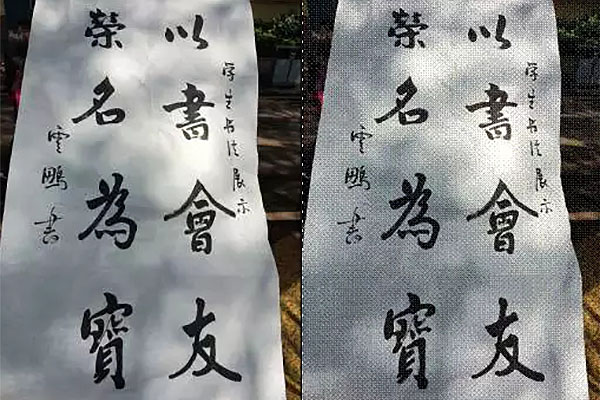 以書會友
学生书法展示
榮名為寶
雲鵬書
以書會友
学生书法展示
榮名為寶
雲鵬書